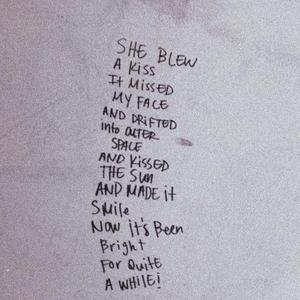 SHE BLEW
A Kiss
It Missed
MY FACE
AND DRiFTED
into outer
SPACE
AND Kissed
THE Sun
AND MADE it
Smile
Now it's Been
Bright
For Quite
A WHILE!